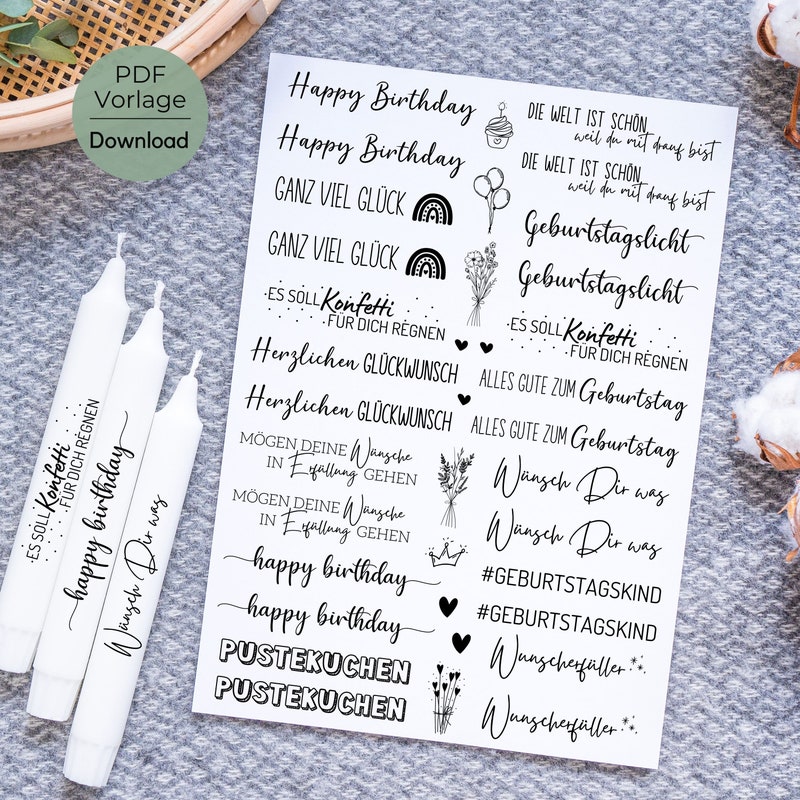 PDF
Vorlage
Download
Happy Birthday
Happy Birthday
GANZ VIEL GLÜCK
GANZ VIEL GLÜCK
ES SOLL Konfetti
FÜR DICH REGNEN
Herzlichen GLÜCKWUNSCH
Herzlichen GLÜCKWUNSCH
MÖGEN DEINE Wünsche
IN Erfüllung GEHEN
MÖGEN DEINE Wünsche
IN Erfüllung GEHEN
happy birthday
happy birthday
PUSTEKUCHEN
PUSTEKUCHEN
DIE WELT IST SCHÖN,
weil du mit drauf bist
DIE WELT IST SCHÖN,
weil du mit drauf bist
Geburtstagslicht
Geburtstagslicht
ES SOLL Konfetti
FÜR DICH REGNEN
ALLES GUTE ZUM Geburtstag
ALLES GUTE ZUM Geburtstag
Wünsch Dir was
Wünsch Dir was
#GEBURTSTAGSKIND
#GEBURTSTAGSKIND
Wunscherfüller
Wunscherfüller
ES SOLL Konfetti
FÜR DICH REGNEN
happy birthday
Wünsch Dir was